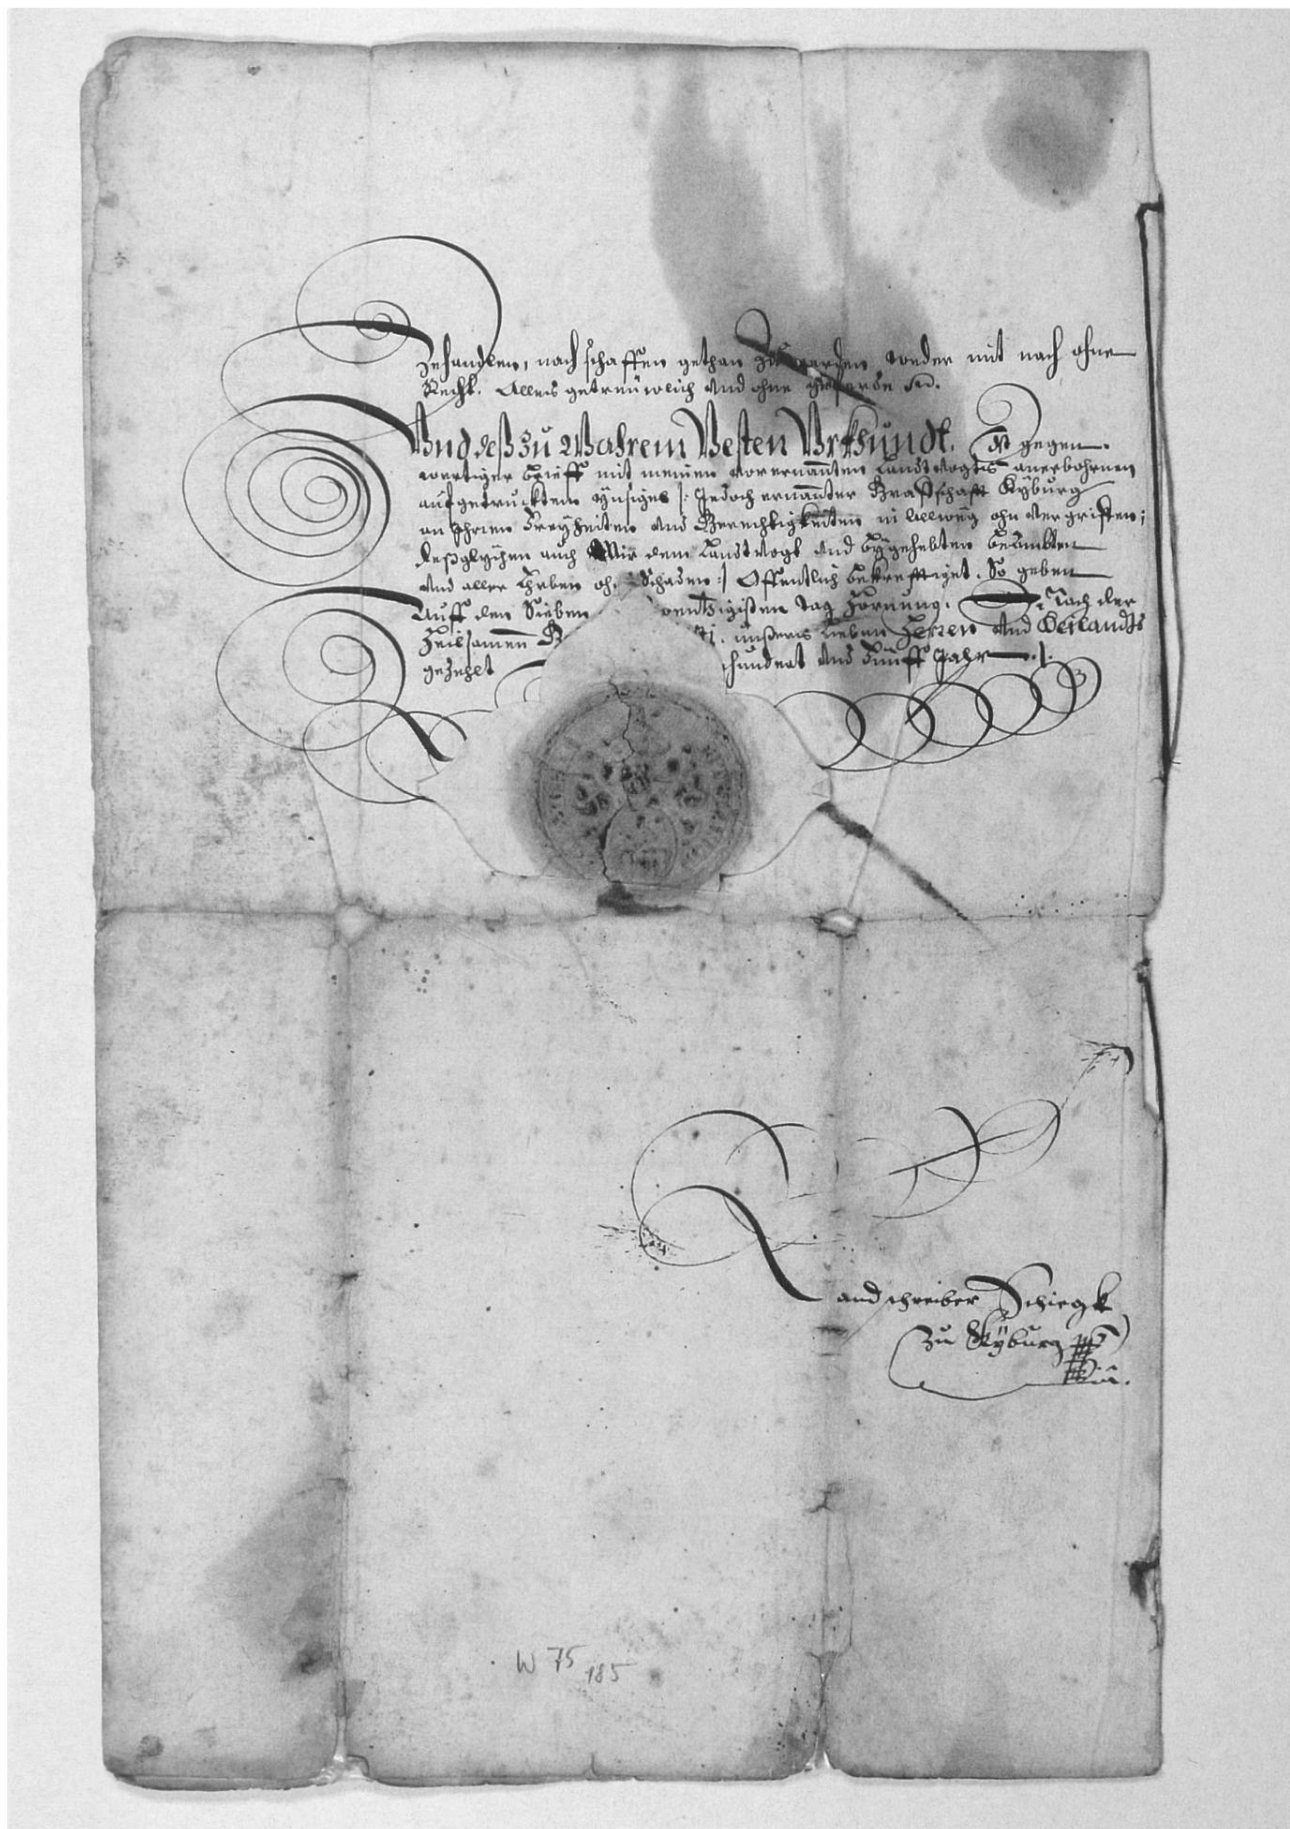 Zehandlen, nach schaffen gethan zu werden weder mit nach ohne
Recht. Alles getreüwlich und ohne geferde
Und deß zu Wahrem Vesten Urkhundt. Ist gegen-
wertiger Brieff mit meinem vorernannten Landtvogts anerbohrnen
aufgetruckten Ynsigel /: Jedoch ernannter Graffschafft Kyburg
an Ihren Freyheiten und Gerechtigkeiten in allweg ohn vergriffen;
deßglychen auch Mir dem Landtvogt und bygehebten Beambten
und aller Erben oh Schaden :/ Offentlich bekrefftiget. So geben
Auff den Sieben wentzigisten Tag Hornung. Nach der
Heilsamen G ti. unßers lieben Herren und Heilandts
gezehlt hundert und fünff Jahr
Landschreiber Schiegk
Zu Kyburg
W 75 185